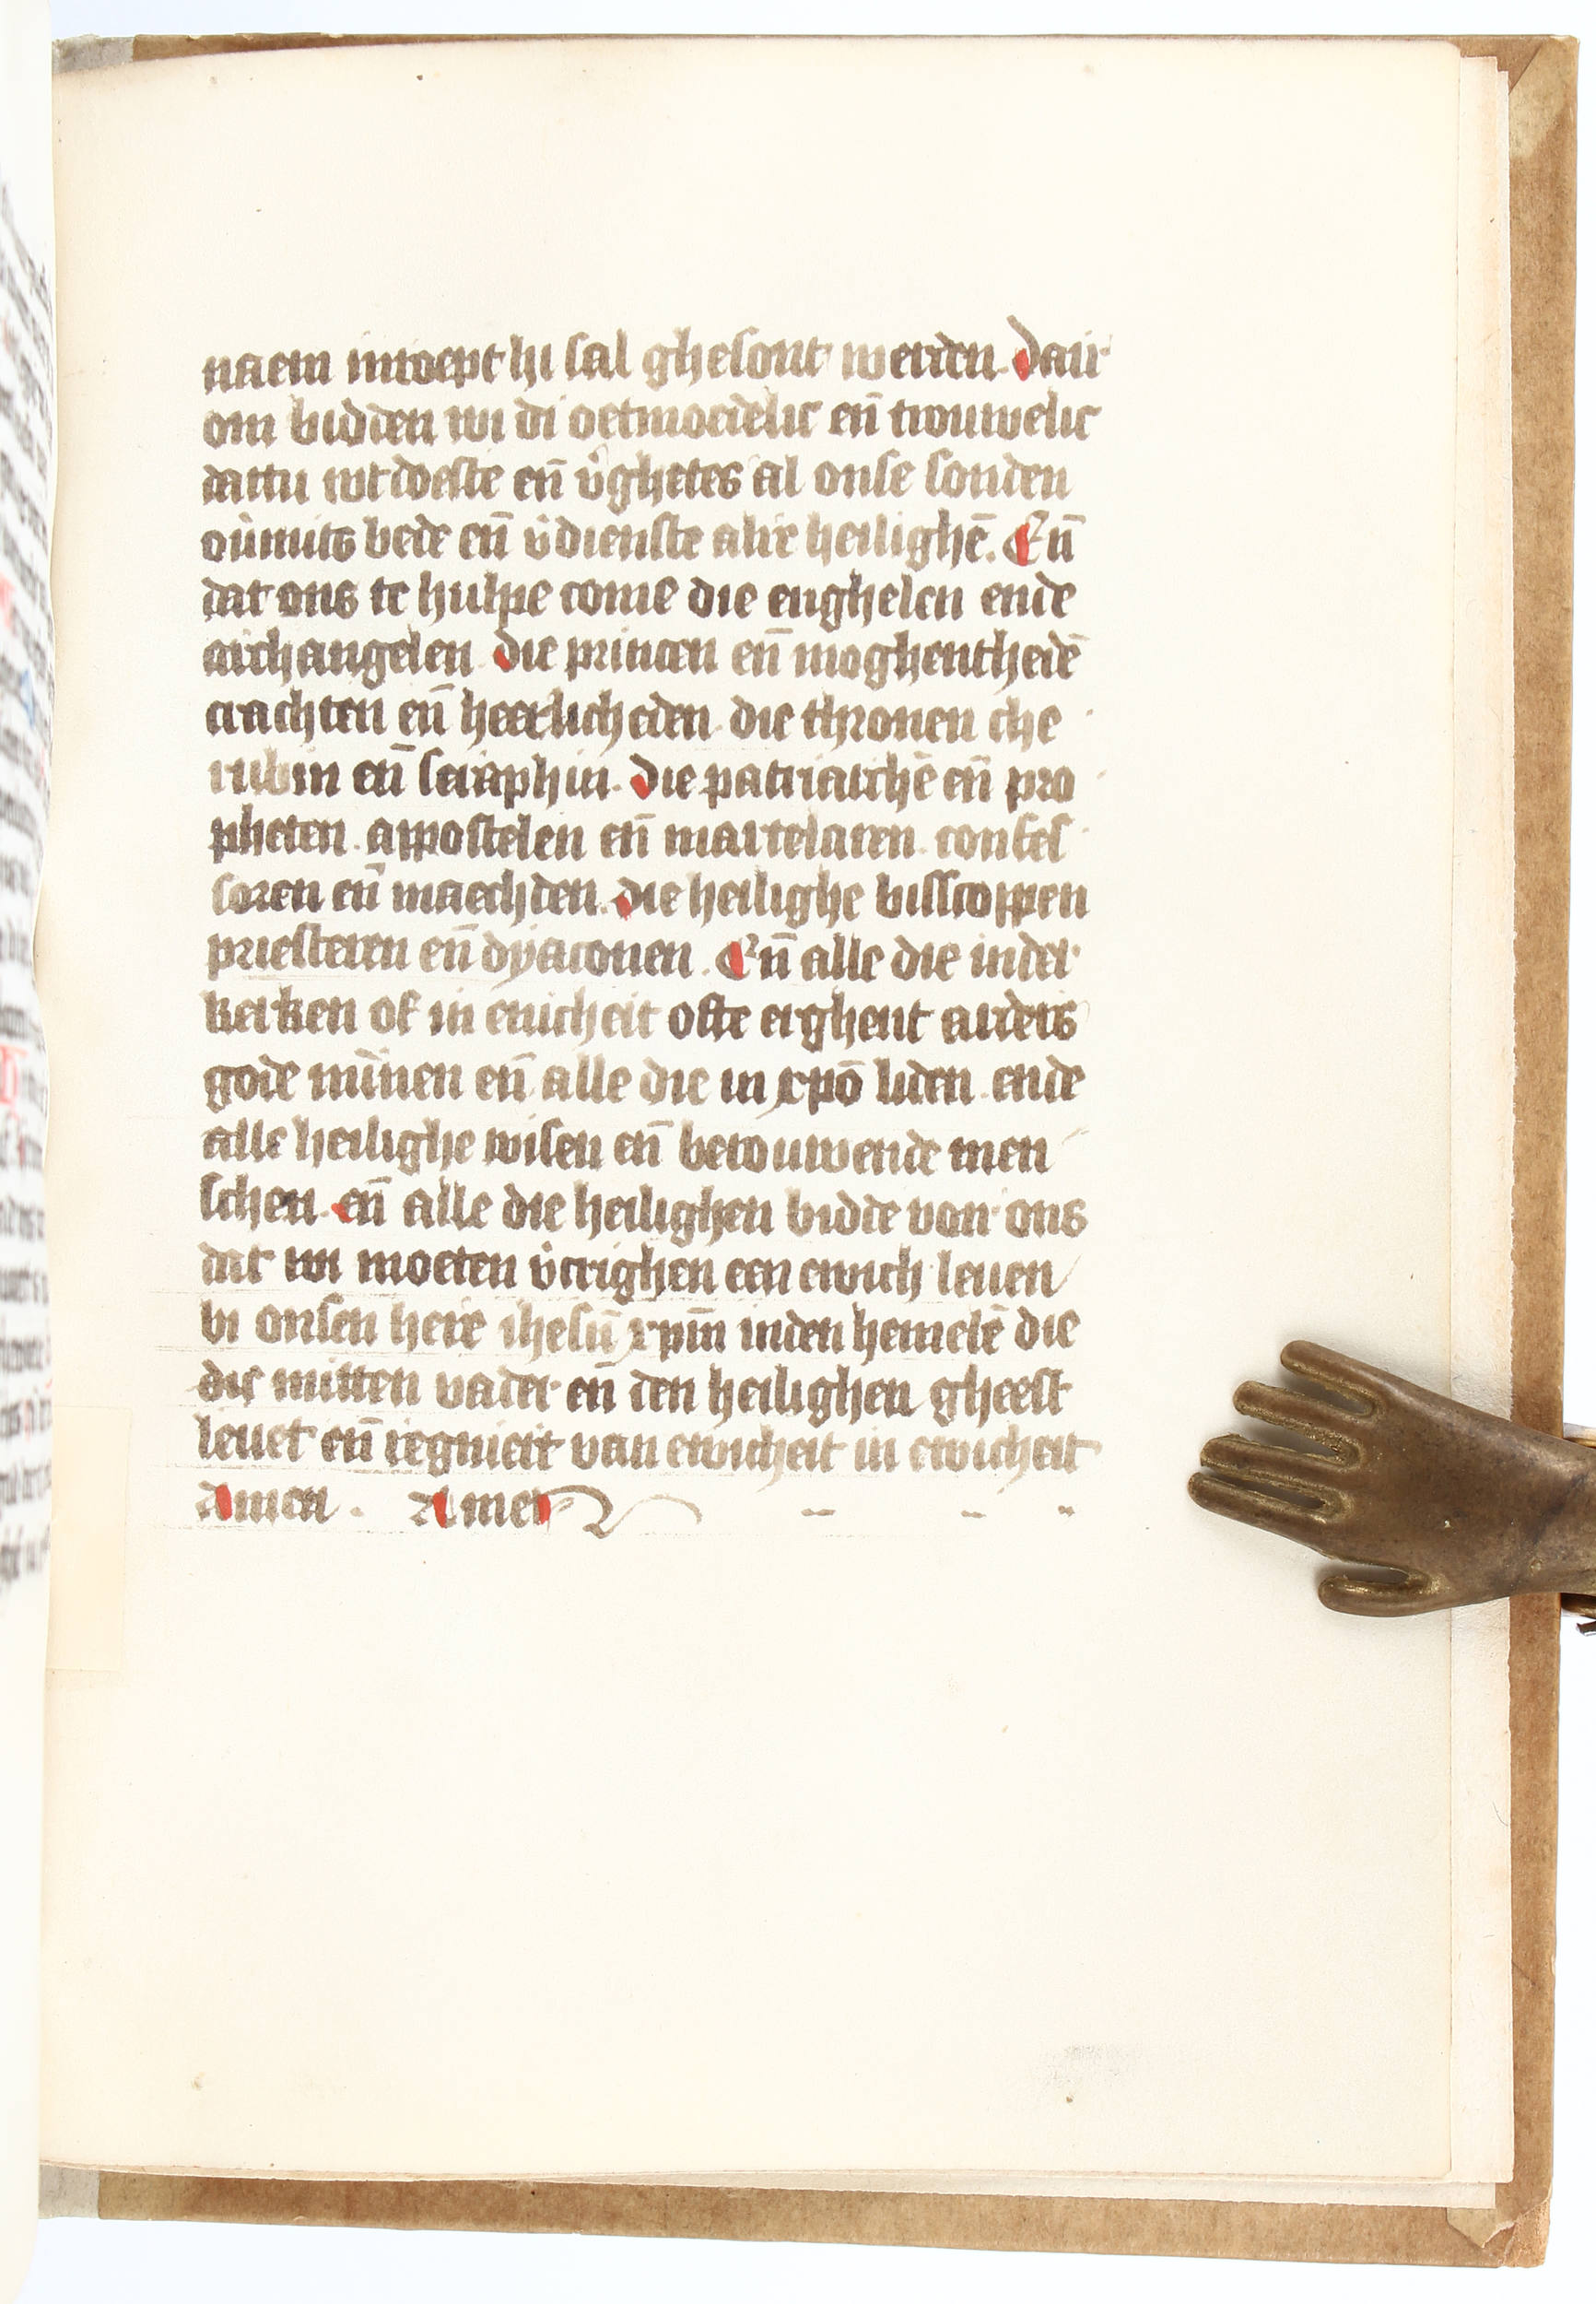 naem inroept hi sal ghesont werden. Dair
om bidden wi di oetmoedelic en̄ trouwelic
dattu wtdoeste en̄ v̓ghetes al onse sonden
ov̓mits bede en̄ v̓dienste alre heilighē. En̄
dat ons te hulpe come die enghelen ende
archangelen. Die princen en̄ moghenthedē
crachten en̄ heerlicheden. die thronen che
rubin en̄ seraphin. Die patriarchē en̄ pro
pheten. appostelen en̄ martelaren. confes
soren en̄ maechden. Die heilighe bisscoppen
priesteren en̄ dyaconen. En̄ alle die inder
kerken of in enicheit ofte erghent anders
gode mīnen en̄ alle die in xpō liden. ende
alle heilighe wisen en̄ betrouwende men
schen. en̄ alle die heilighen bidde voer ons
dat wi moeten v̓crighen een ewich leuen
bi onsen here ihesū xpm̄ inden hemelē die
die mitten vader en̄ den heilighen gheest
leuet en̄ regniert van ewicheit in ewicheit
Amen. Amen